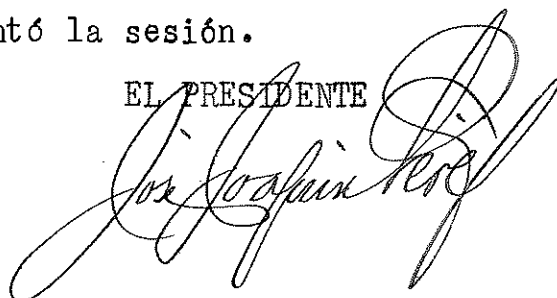 ntó la sesión.
EL PRESIDENTE
José Joaquín Pérez